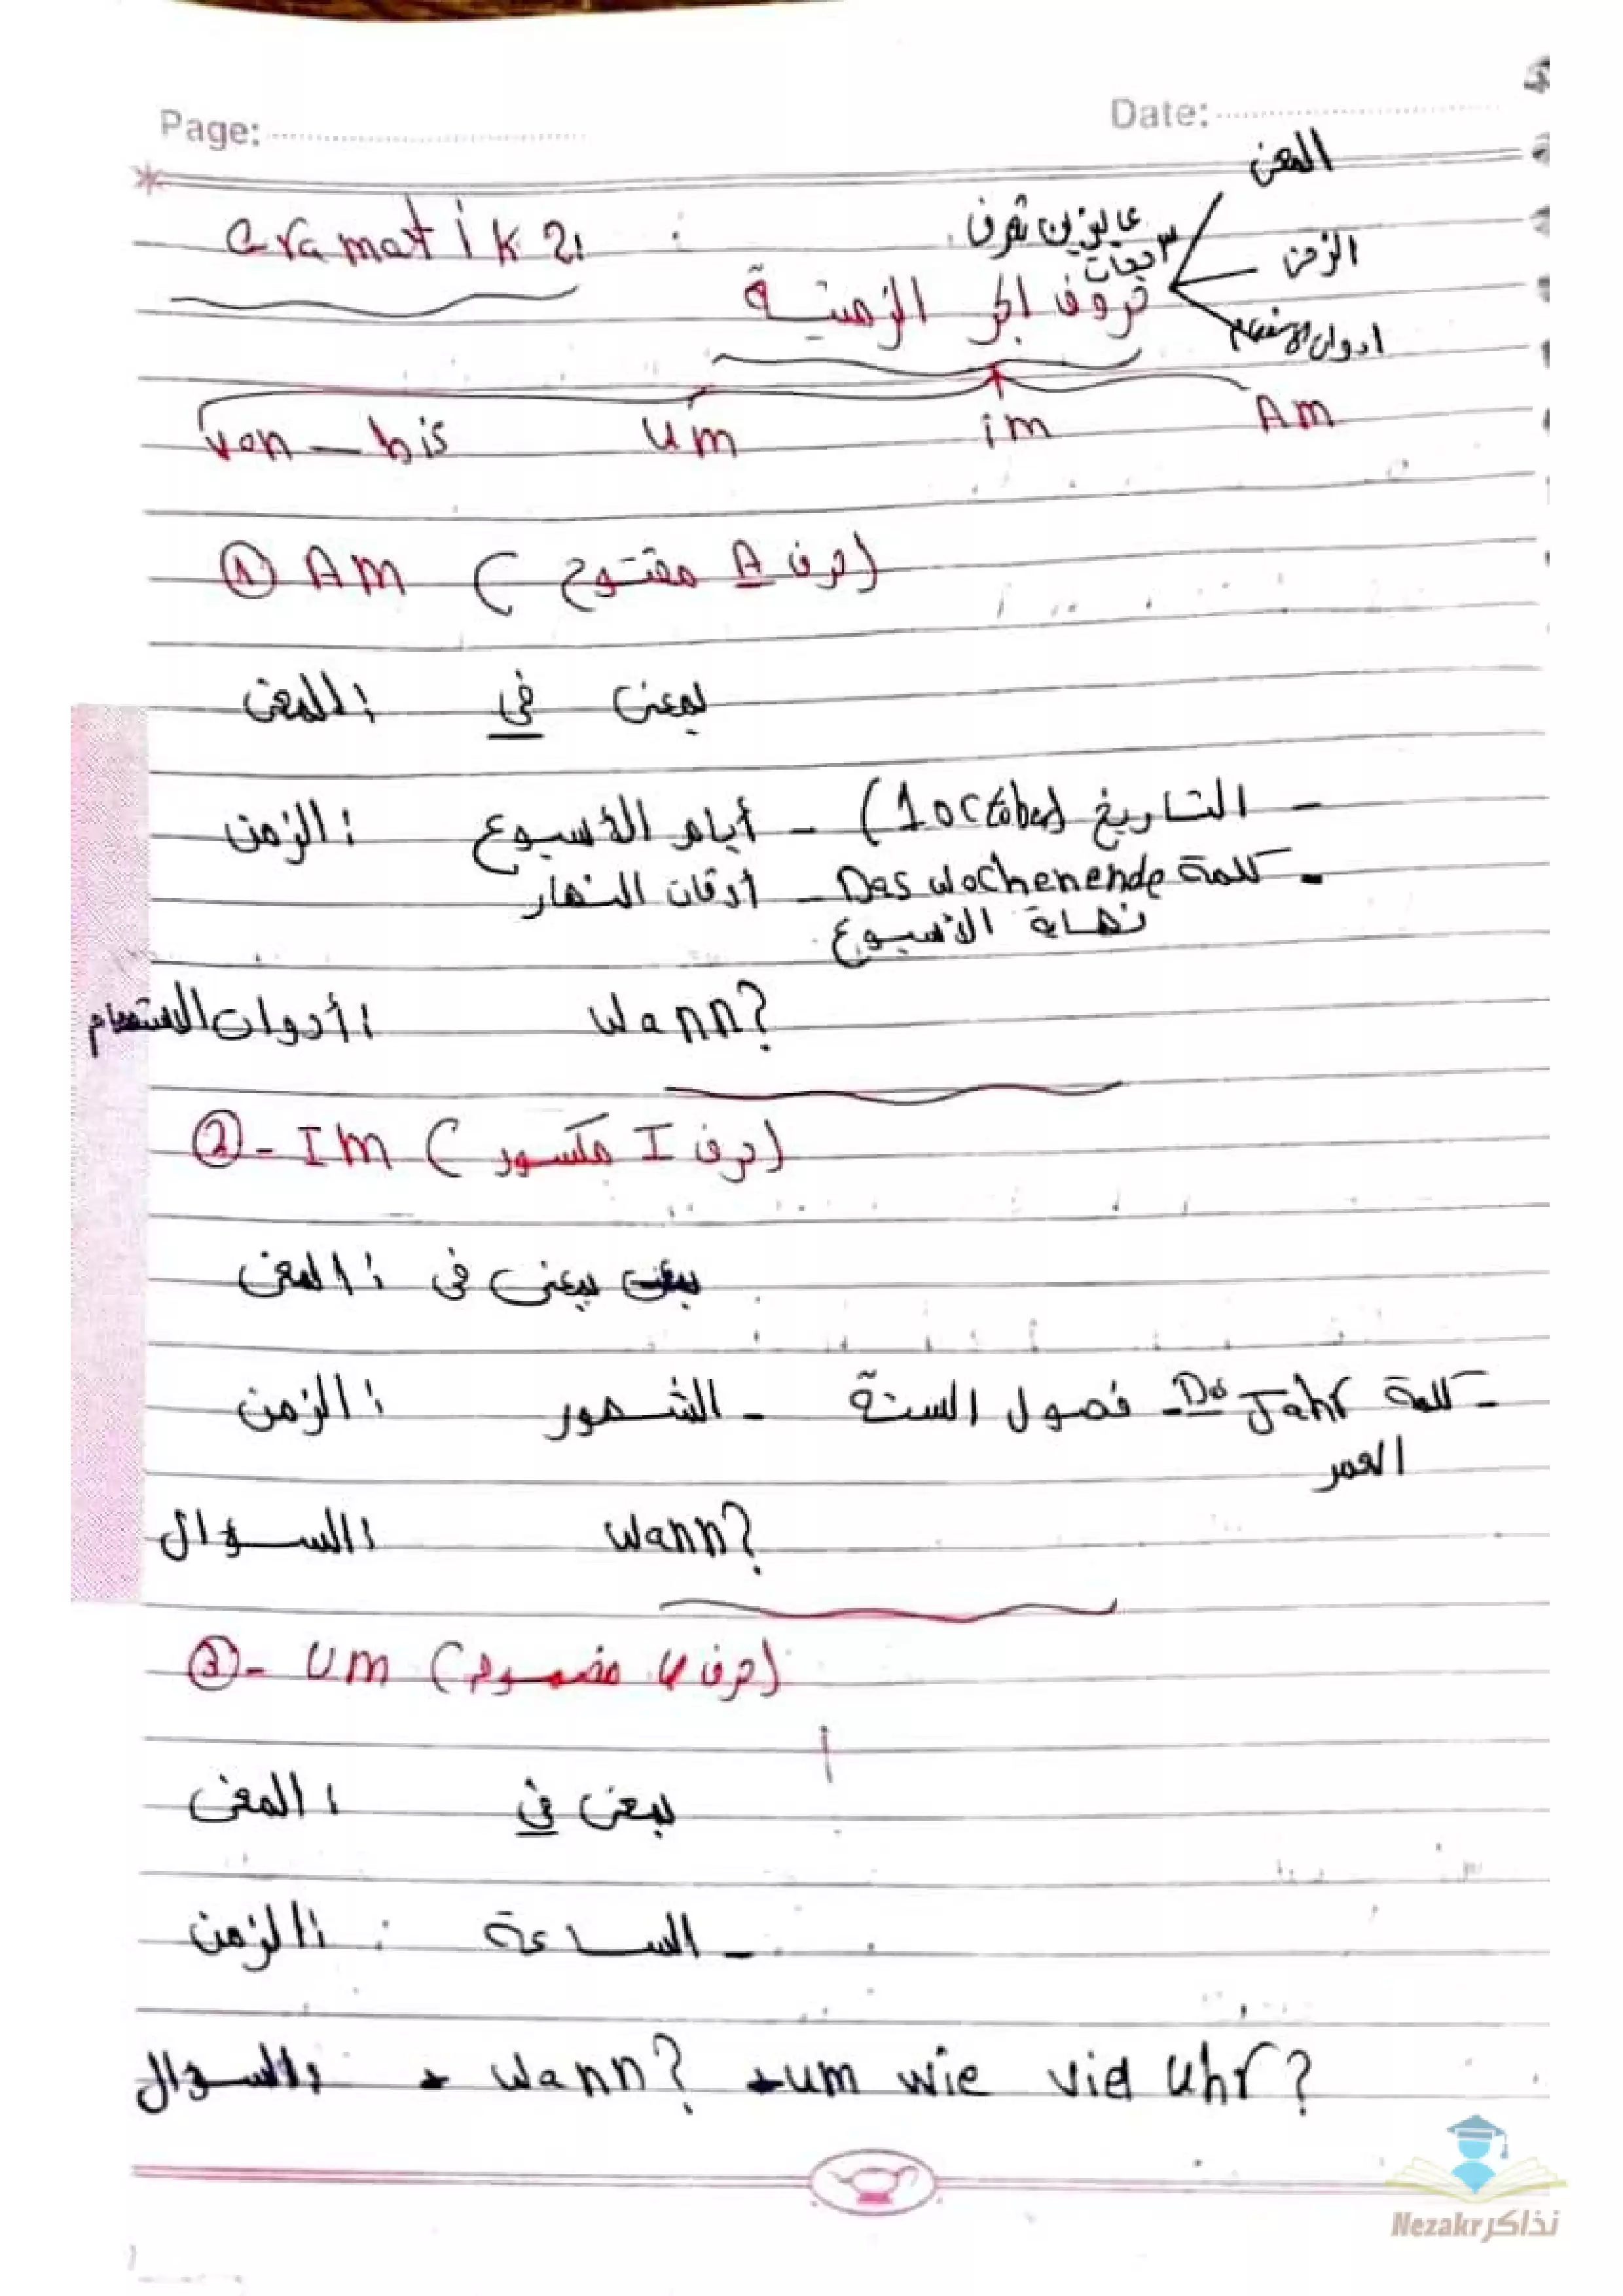 Page:
Date:
المعنى
Gramatik 2:
عايزين نعرف
٣ حاجات
الزمن
حروف الجر الزمنية
ادوات الاستفهام
von — bis um im Am
① Am (حرف A مفتوح)
المعنى: بمعنى في
الزمن: أيام الأسبوع - التاريخ (1 october) -
أوقات النهار - كلمة Das wochenende -
نهاية الأسبوع
أدوات الاستفهام: Wann?
② - Im (حرف I مكسور)
المعنى: بمعنى في
الزمن: الشهور - فصول السنة - كلمة Das Jahr -
العمر
السؤال: wann?
③ - Um (حرف U مضموم)
المعنى: بمعنى في
الزمن: الساعة -
السؤال: + wann? + um wie viel Uhr?
Nezakr نذاكر